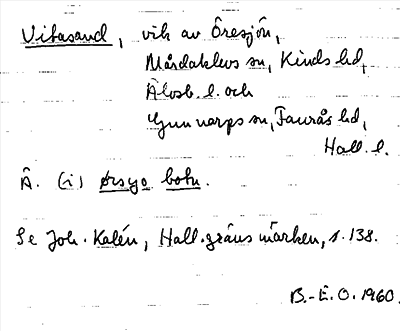 Vitasand, vik av Öresjön,
Mårdaklevs sn, Kinds hd,
Älvsb. l. och
Gunnarps sn, Faurås hd,
Hall. l.
Ä. (i) Ørsyo botn.
Se Joh. Kalén, Hall. gränsmärken, s. 138.
B.-E. O. 1960.